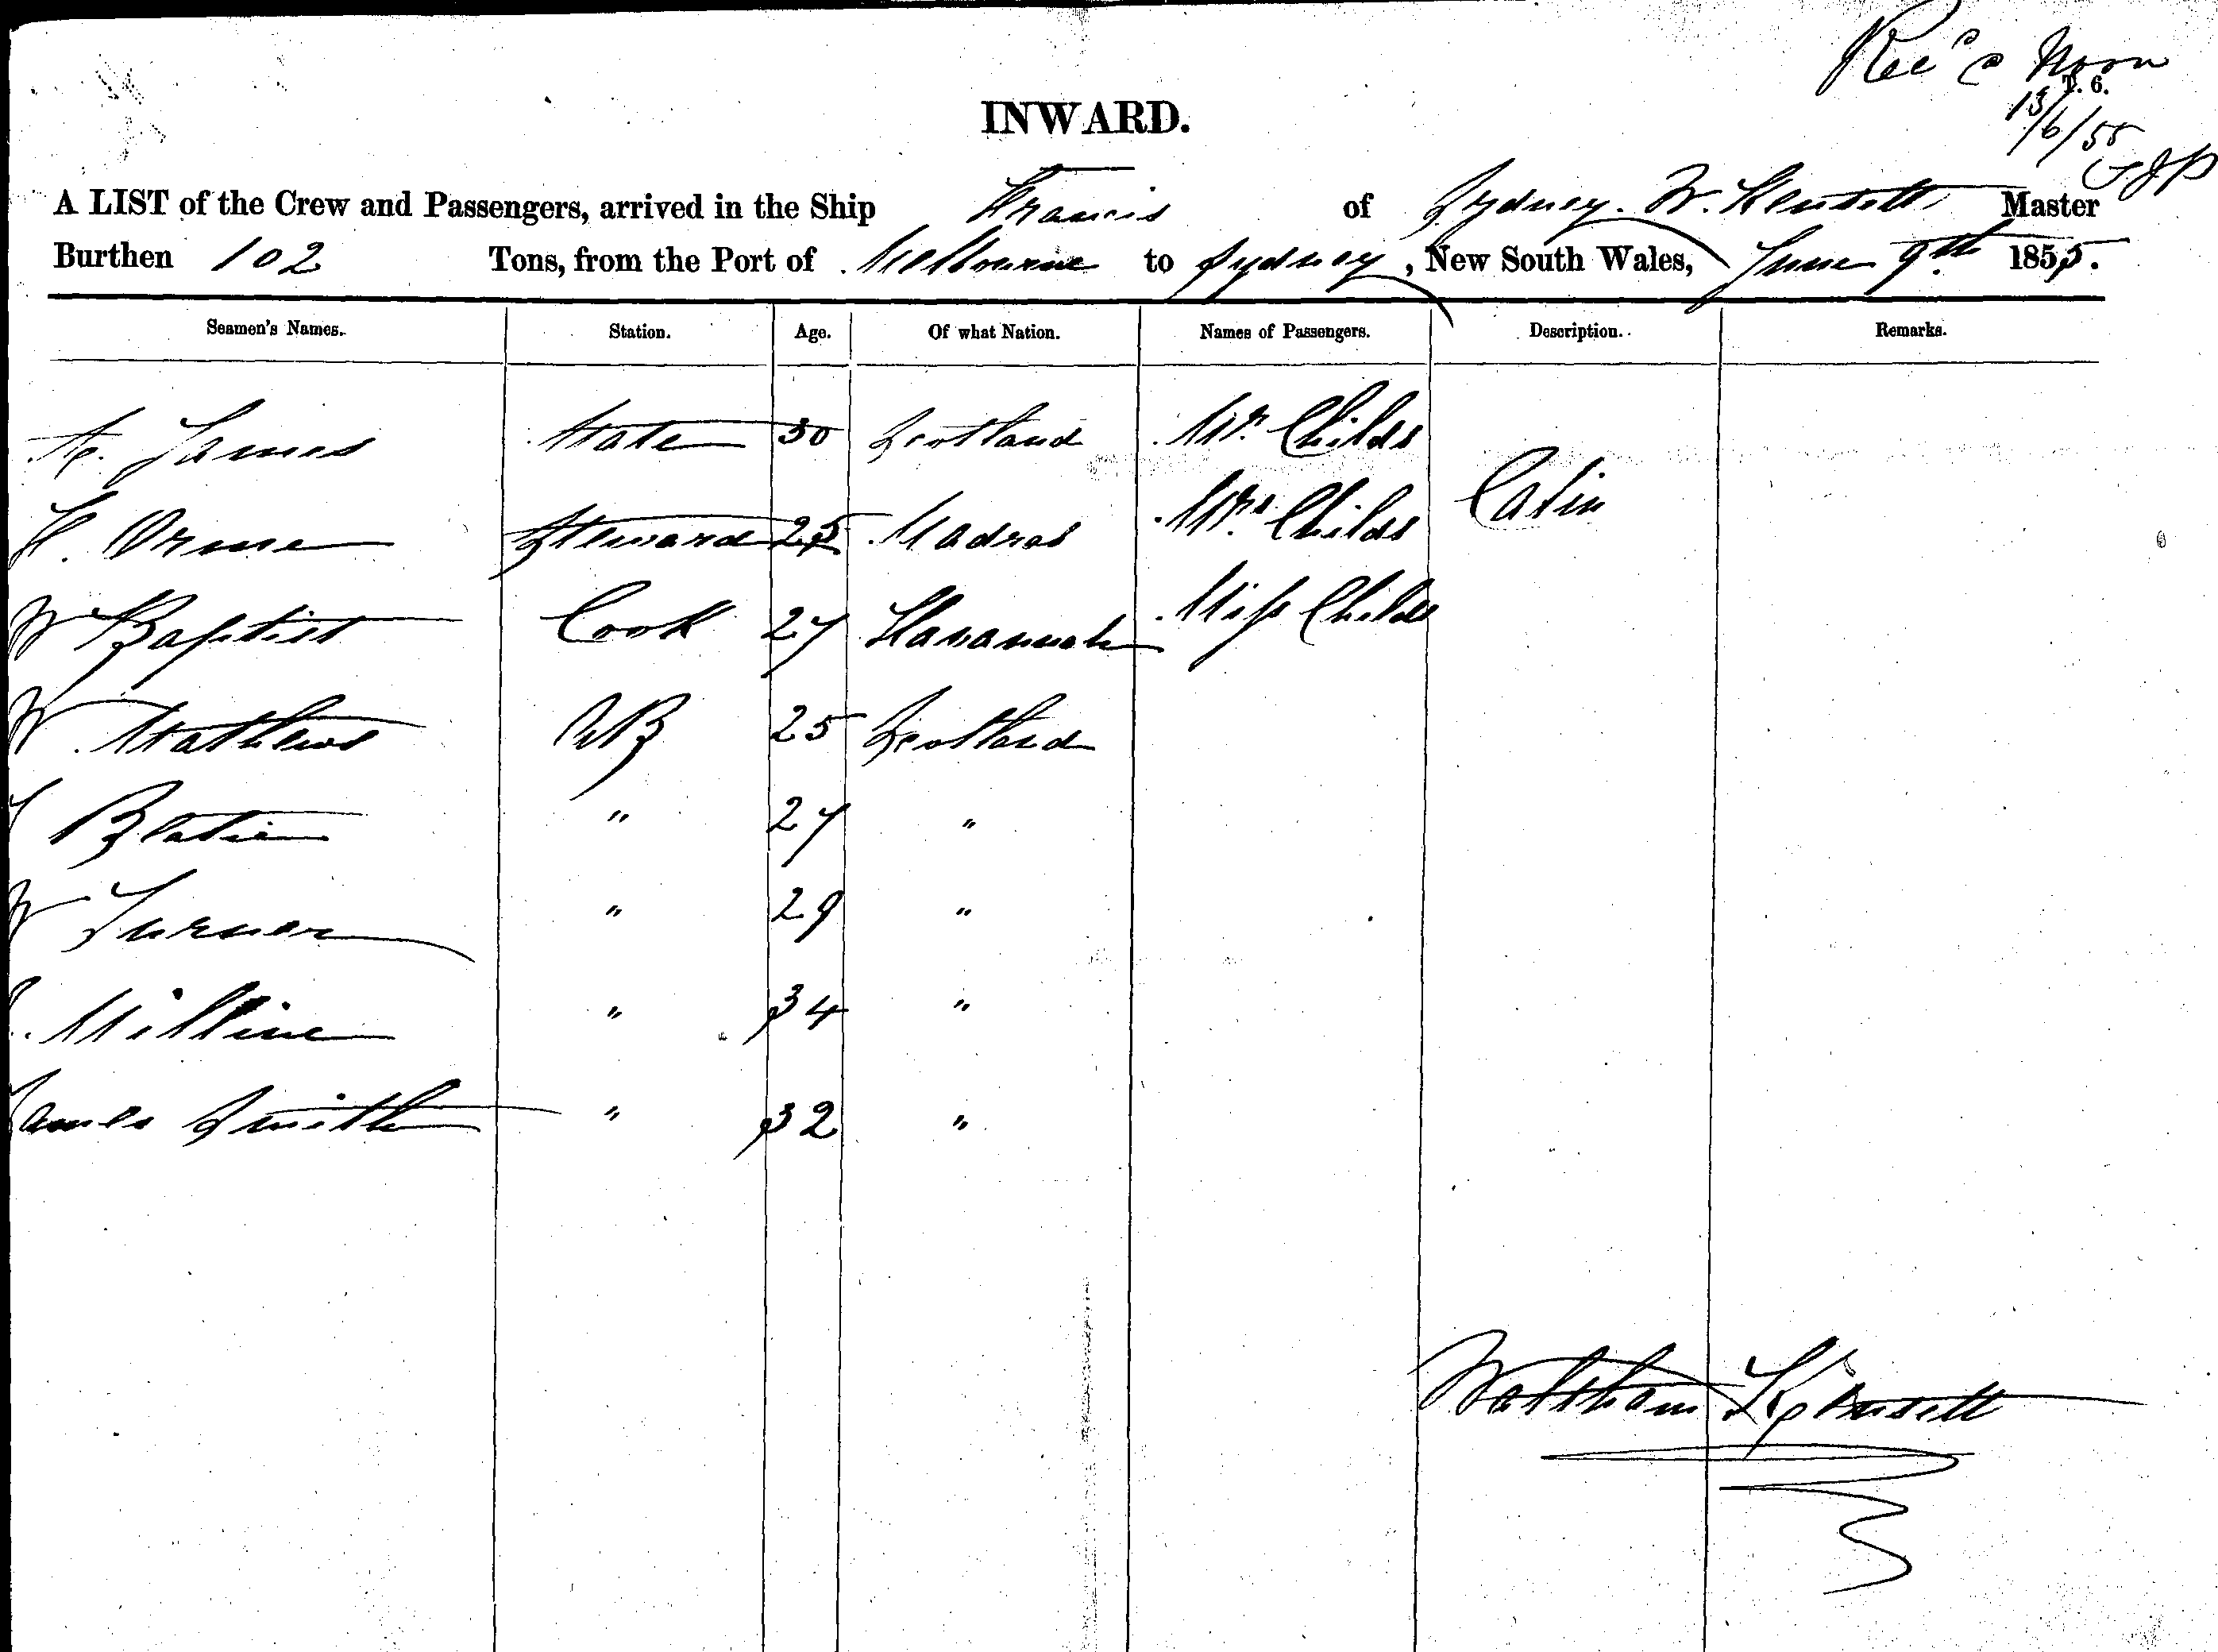 Rec'd @ Noon
T. 6.
13/6/55
INWARD.
A LIST of the Crew and Passengers, arrived in the Ship Francis of Sydney. W. Kensett Master
Burthen 102 Tons, from the Port of Melbourne to Sydney, New South Wales, June 9th 1855.
Seamen's Names. Station. Age. Of what Nation. Names of Passengers. Description. Remarks.
A. James Mate 30 Scotland Mr. Childs
H. Orme Steward 25 Madras Mrs. Childs Cabin
W Baptist Cook 27 Havannah Miss Childs
W Mathews AB 25 Scotland
Blatie " 27 "
W Turner " 29 "
Milline " 34 "
James Smith " 32 "
Waltham Kensett